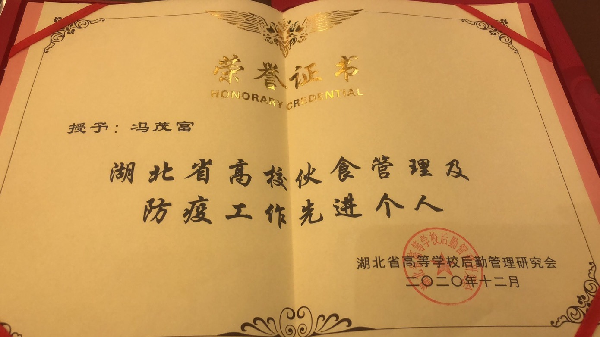 荣誉证书
HONORARY CREDENTIAL
授予：冯茂富
湖北省高校伙食管理及
防疫工作先进个人
湖北省高等学校后勤管理研究会
二〇二〇年十二月